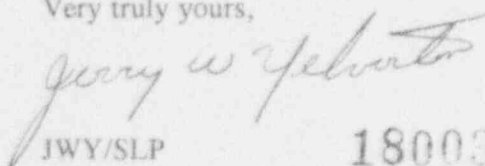 Very truly yours,
Jerry W Yelverton
JWY/SLP 18003